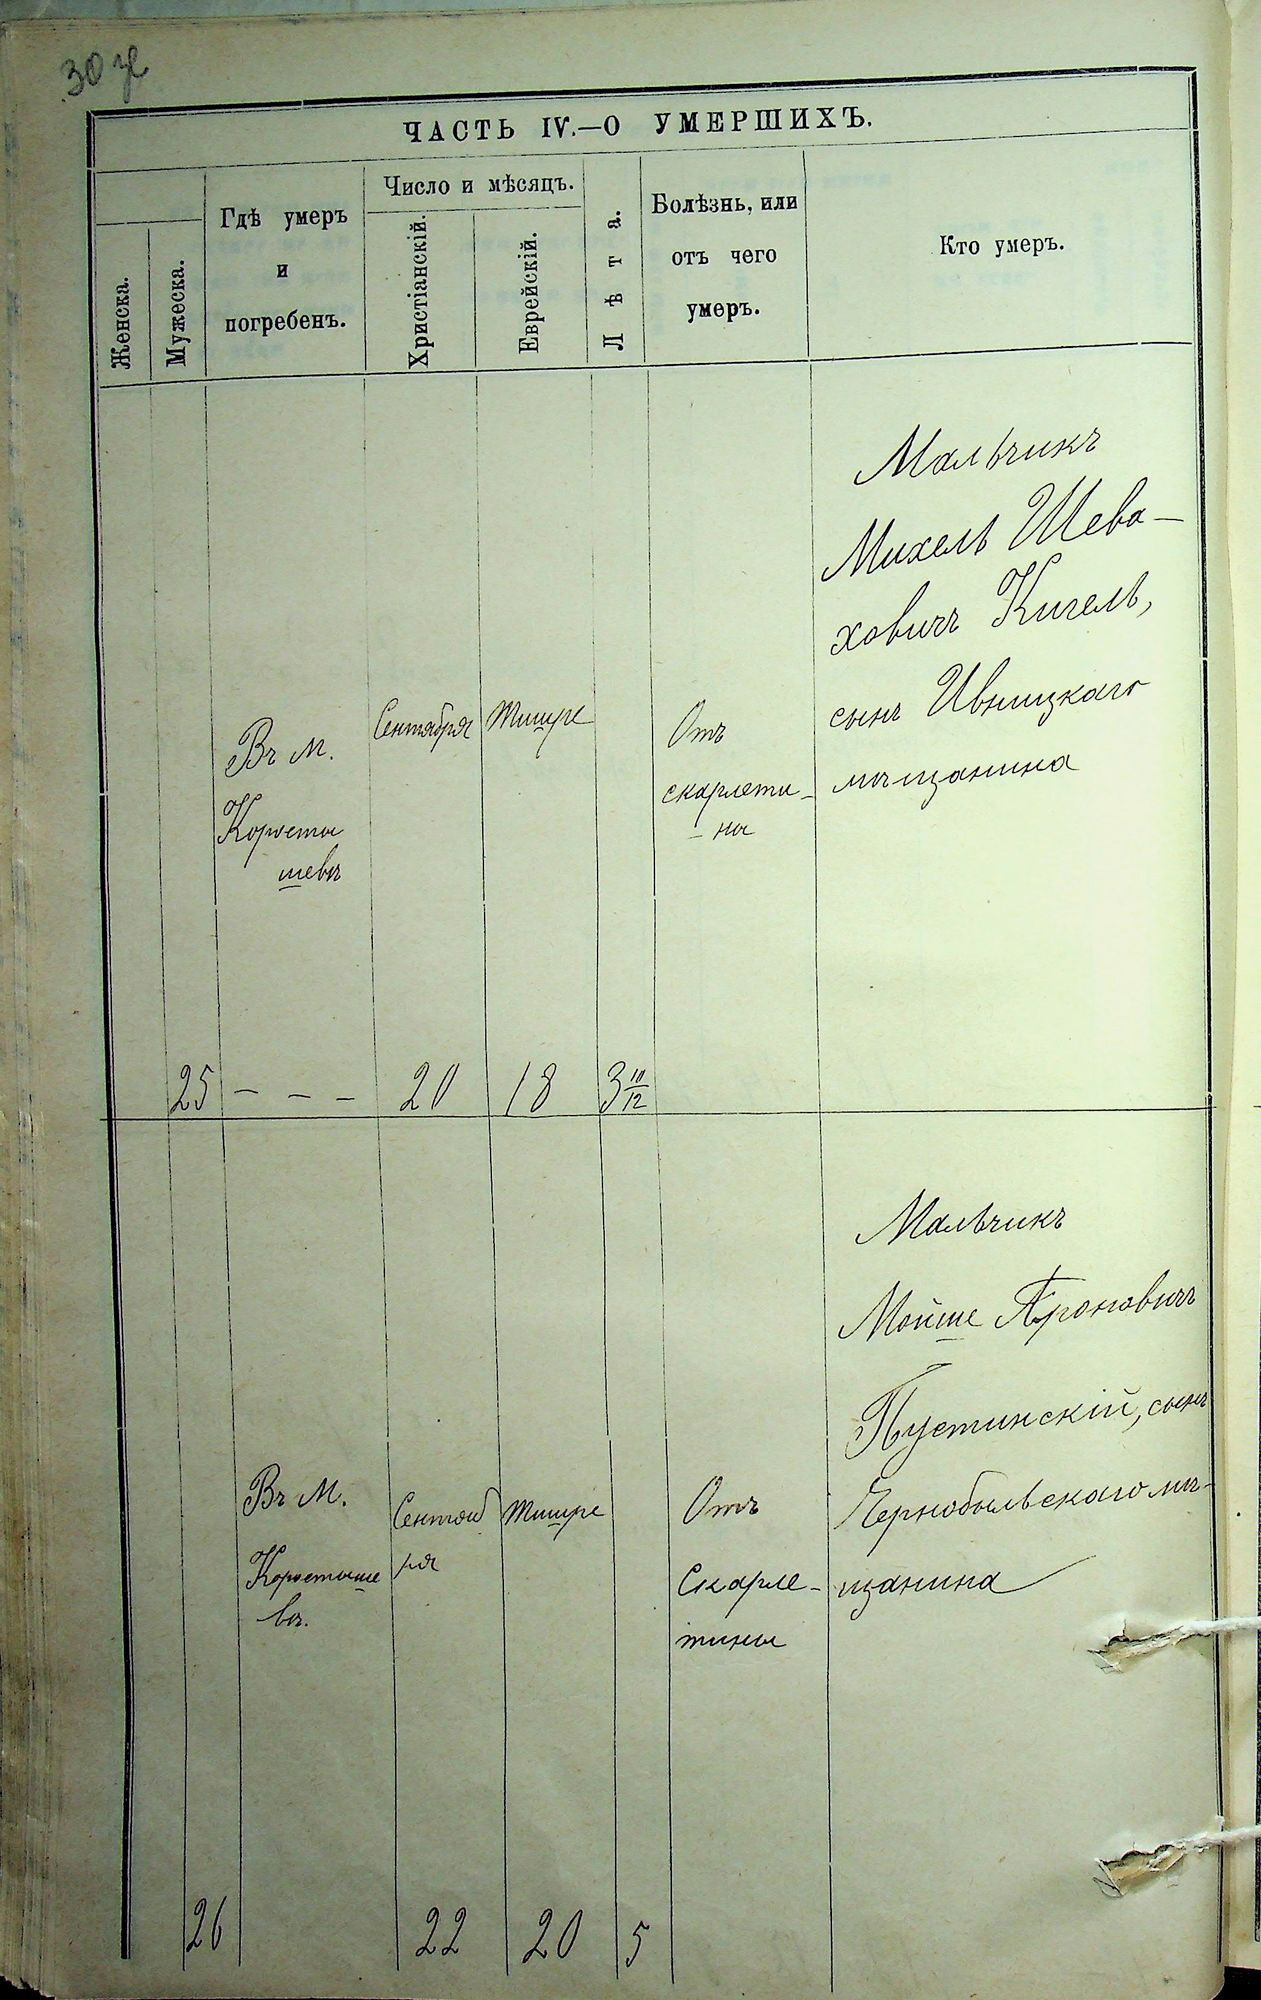 ЧАСТЬ IV.—О УМЕРШИХЪ.
Женска.
Мужеска.
Гдѣ умеръ
и
погребенъ.
Число и мѣсяцъ.
Христіанскій.
Еврейскій.
Лѣта.
Болѣзнь, или
отъ чего
умеръ.
Кто умеръ.
25
Въ м.
Коросты
шевѣ
- - -
Сентября
20
Тишре
18
3 10/12
Отъ
скарлети-
- ны
Мальчикъ
Михель Шева-
ховичъ Кигель,
сынъ Ивницкаго
мѣщанина
26
Въ м.
Коростыше
вѣ.
Сентяб
ря
22
Тишре
20
5
Отъ
Скарле-
тины
Мальчикъ
Мойше Ароновичъ
Пустинскій, сынъ
Чернобыльскаго мѣ-
щанина